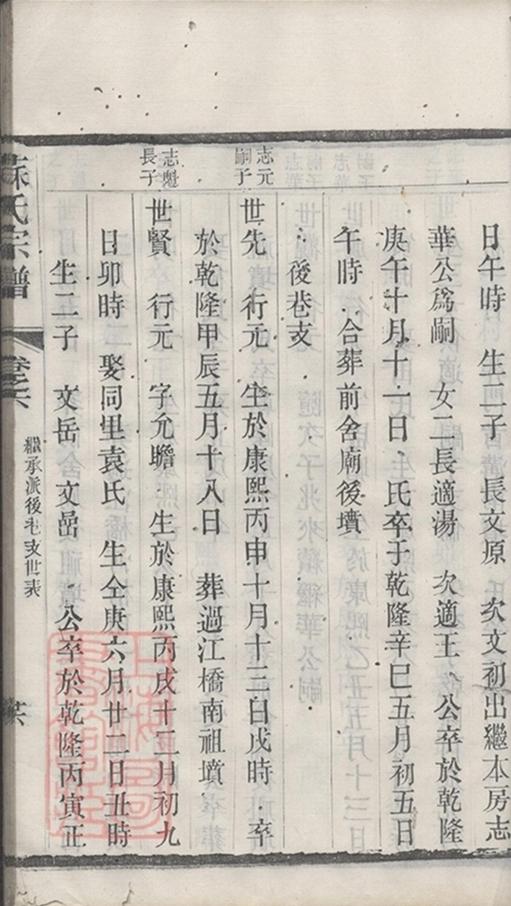 日午時　生二子　長文原　次文初出繼本房志
華公爲嗣　女二長適湯　次適王、公卒於乾隆
庚午十月十一日、氏卒于乾隆辛巳五月初五日
午時　合葬前舍廟後墳
後巷支
志元嗣子
世先　行元　生於康熙丙申十月十三日戌時．卒
於乾隆甲辰五月十八日　葬過江橋南祖墳
志魁長子
世賢　行元　字允瞻　生於康熙丙戌十二月初九
日卯時　娶同里袁氏　生仝庚六月廿二日丑時
生二子　文岳　文嵒．公卒於乾隆丙寅正
蘇氏宗譜
卷之六
繼承派後巷支世表